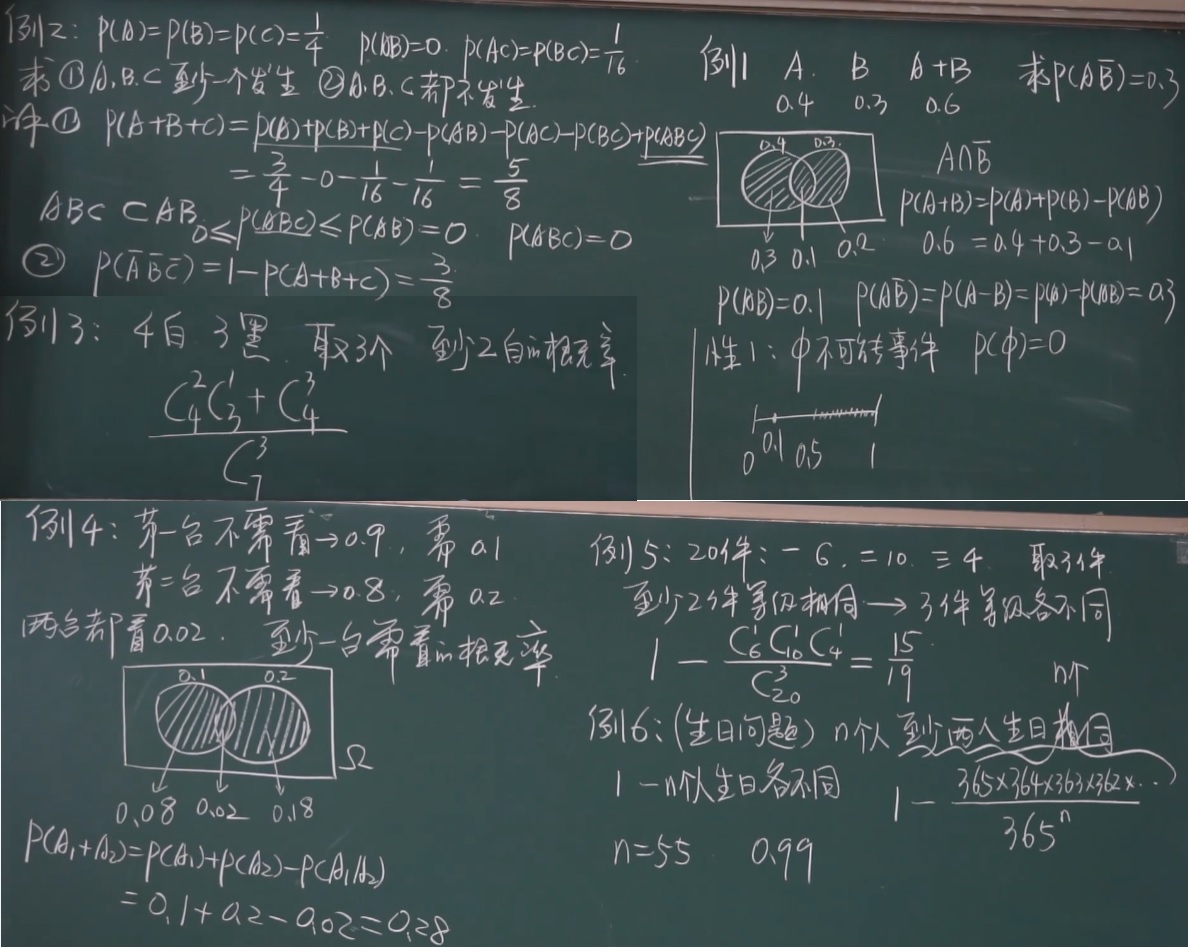 例2: P(A)=P(B)=P(C)=1/4 P(AB)=0. P(AC)=P(BC)=1/16
求 ①A.B.C 至少一个发生 ②A.B.C都不发生.
解① P(A+B+C)=P(A)+P(B)+P(C)-P(AB)-P(AC)-P(BC)+P(ABC)
=3/4-0-1/16-1/16=5/8
ABC⊂AB 0≤P(ABC)≤P(AB)=0. P(ABC)=0
② P(A̅B̅C̅)=1-P(A+B+C)=3/8
例1 A. B A+B 求P(AB̅)=0.3
0.4 0.3 0.6
0.4 0.3
A∩B̅
P(A+B)=P(A)+P(B)-P(AB)
0.3 0.1 0.2
0.6=0.4+0.3-0.1
P(AB)=0.1 P(AB̅)=P(A-B)=P(A)-P(AB)=0.3
性1: φ不可能事件 P(φ)=0
0 0.1 0.5 1
例3: 4白 3黑. 取3个 至少2白的概率.
(C₄²C₃¹+C₄³)/C₇³
例4: 第一台不需看→0.9, 需0.1
第二台不需看→0.8, 需0.2
两台都看0.02. 至少一台需看的概率.
0.1 0.2
Ω
0.08 0.02 0.18
P(A₁+A₂)=P(A₁)+P(A₂)-P(A₁A₂)
=0.1+0.2-0.02=0.28
例5: 20件: 一6. 二10. 三4 取3件
至少2件等级相同→3件等级各不同
1-(C₆¹C₁₀¹C₄¹)/C₂₀³=15/19
n个
例6: (生日问题) n个人 至少两人生日相同
1-n个人生日各不同 1-(365×364×363×362×…)/365ⁿ
n=55 0.99